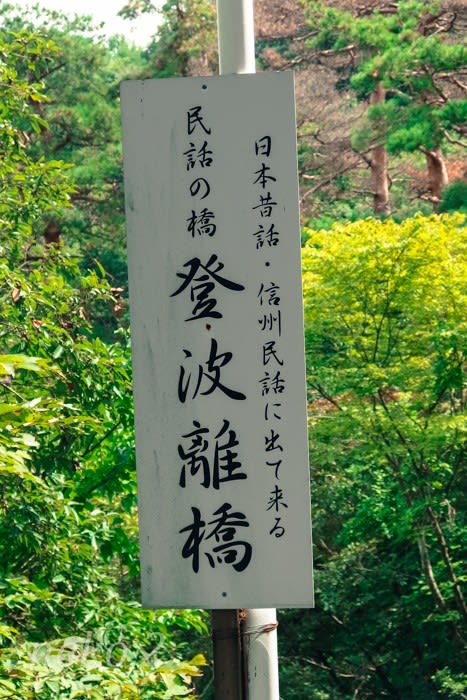 日本昔話・信州民話に出て来る
民話の橋 登波離橋